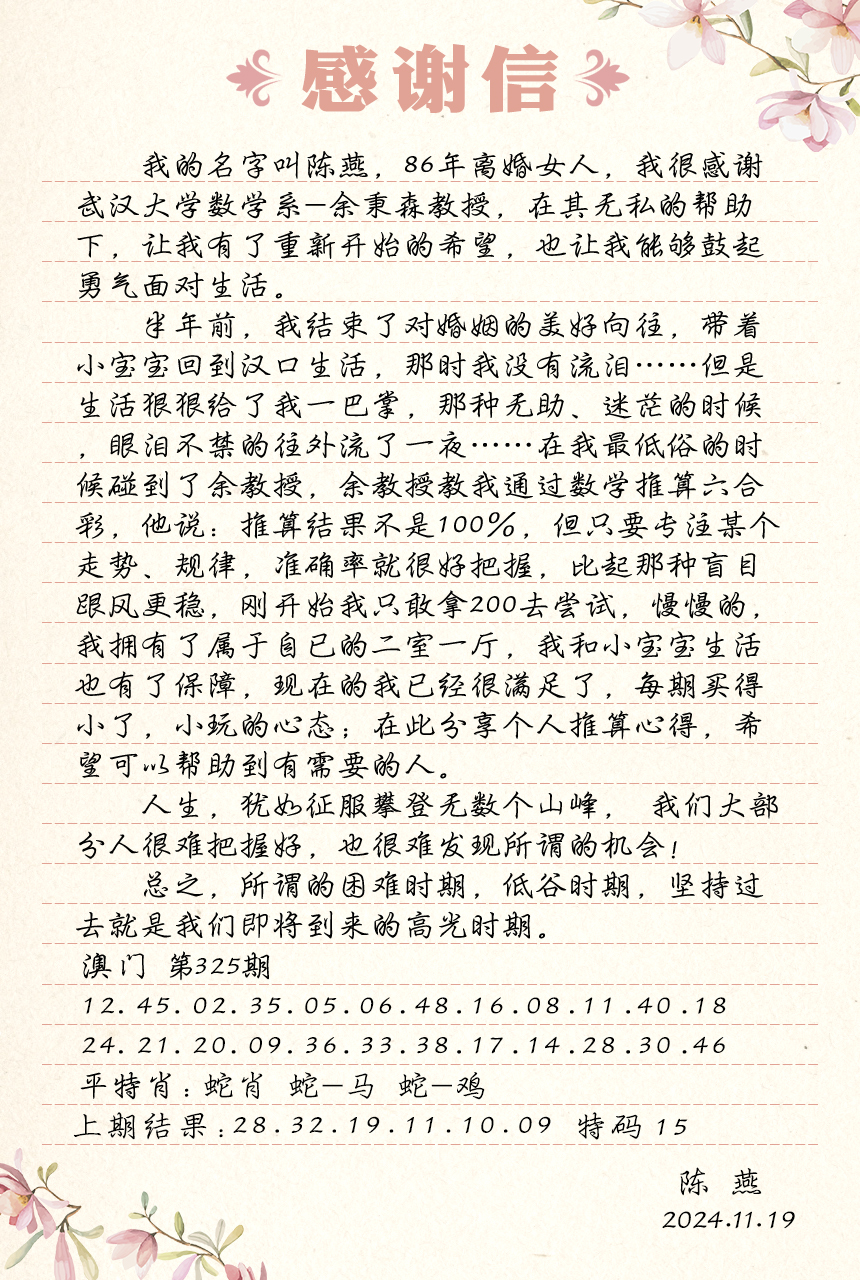 感谢信
我的名字叫陈燕，86年离婚女人，我很感谢
武汉大学数学系—余秉森教授，在其无私的帮助
下，让我有了重新开始的希望，也让我能够鼓起
勇气面对生活。
半年前，我结束了对婚姻的美好向往，带着
小宝宝回到汉口生活，那时我没有流泪……但是
生活狠狠给了我一巴掌，那种无助、迷茫的时候
，眼泪不禁的往外流了一夜……在我最低俗的时
候碰到了余教授，余教授教我通过数学推算六合
彩，他说：推算结果不是100%，但只要专注某个
走势、规律，准确率就很好把握，比起那种盲目
跟风更稳，刚开始我只敢拿200去尝试，慢慢的，
我拥有了属于自已的二室一厅，我和小宝宝生活
也有了保障，现在的我已经很满足了，每期买得
小了，小玩的心态；在此分享个人推算心得，希
望可以帮助到有需要的人。
人生，犹如征服攀登无数个山峰， 我们大部
分人很难把握好，也很难发现所谓的机会！
总之，所谓的困难时期，低谷时期，坚持过
去就是我们即将到来的高光时期。
澳门 第325期
12.45.02.35.05.06.48.16.08.11.40.18
24.21.20.09.36.33.38.17.14.28.30.46
平特肖：蛇肖 蛇—马 蛇—鸡
上期结果：28.32.19.11.10.09 特码 15
陈 燕
2024.11.19